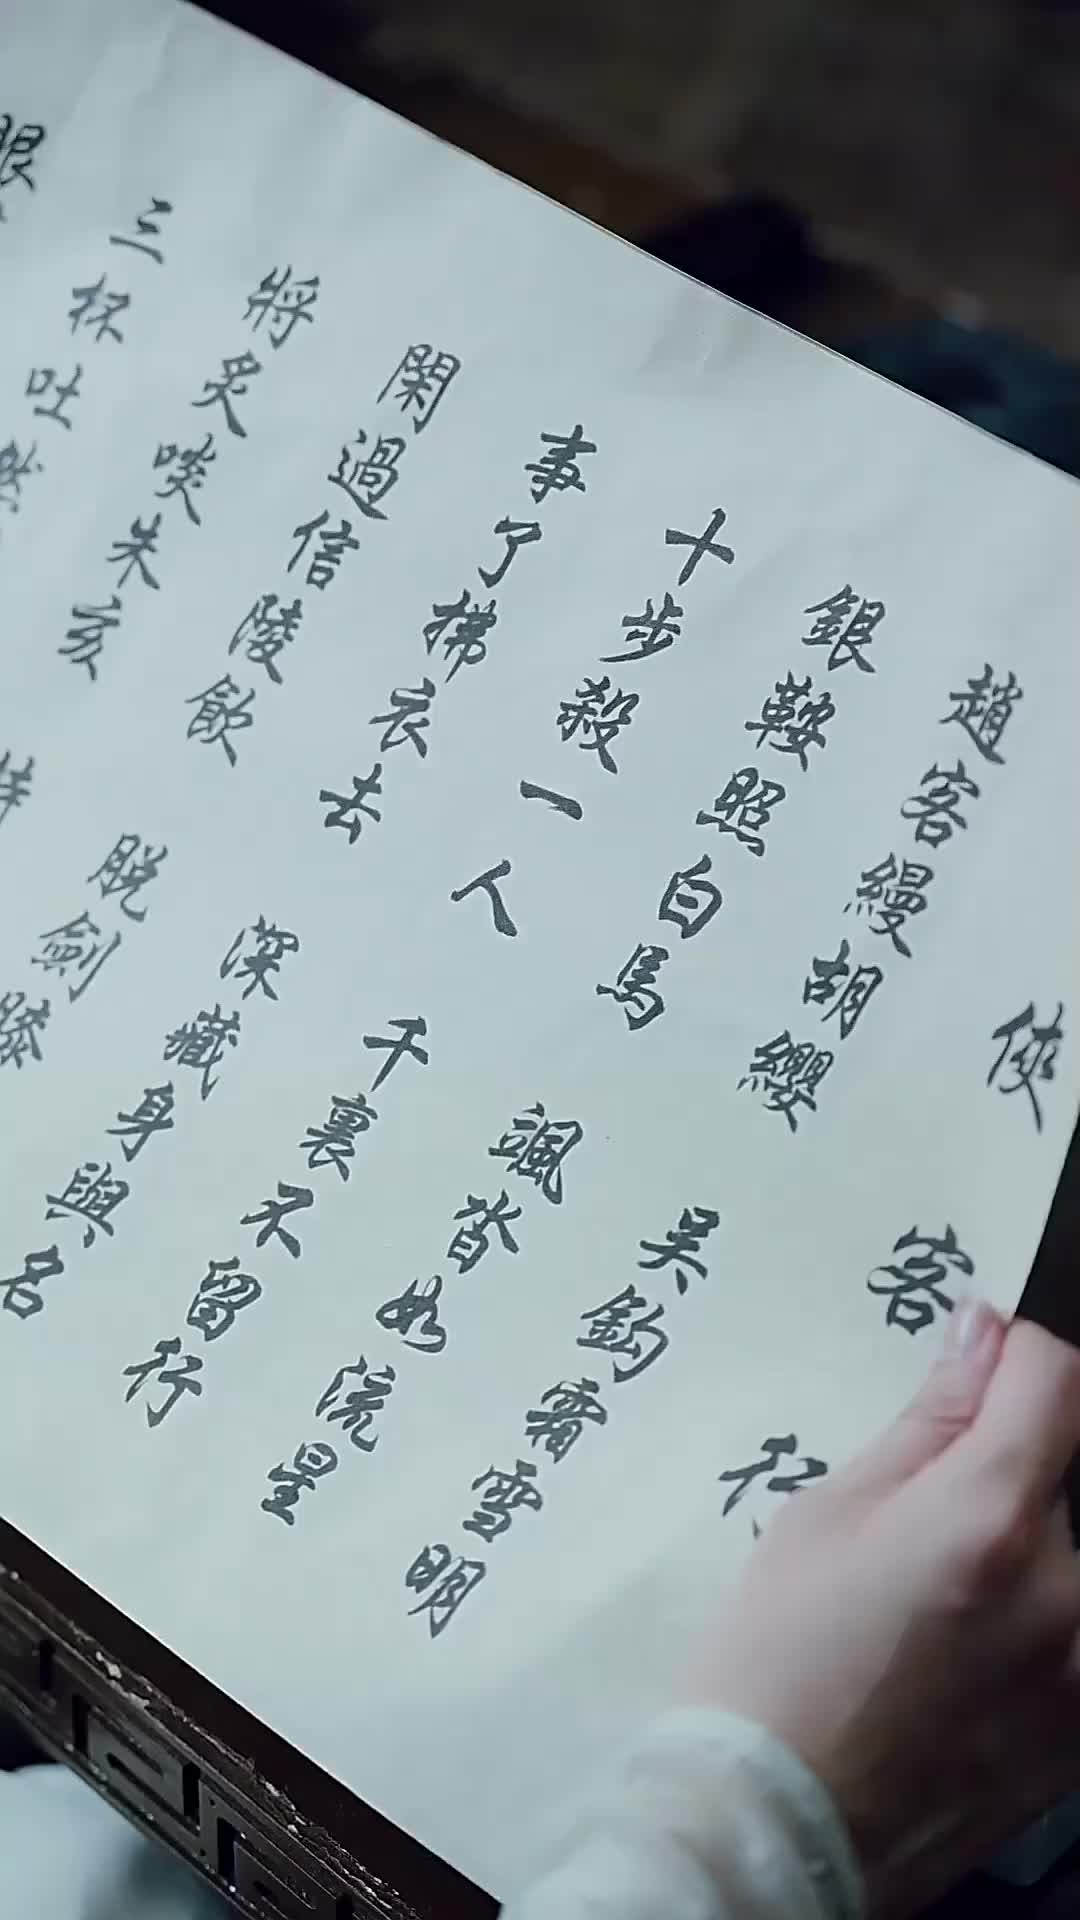 俠客行
趙客縵胡纓 吳鈎霜雪明
銀鞍照白馬 颯沓如流星
十步殺一人 千裏不留行
事了拂衣去 深藏身與名
閑過信陵飲 脱劍膝
將炙啖朱亥
三杯吐然
眼